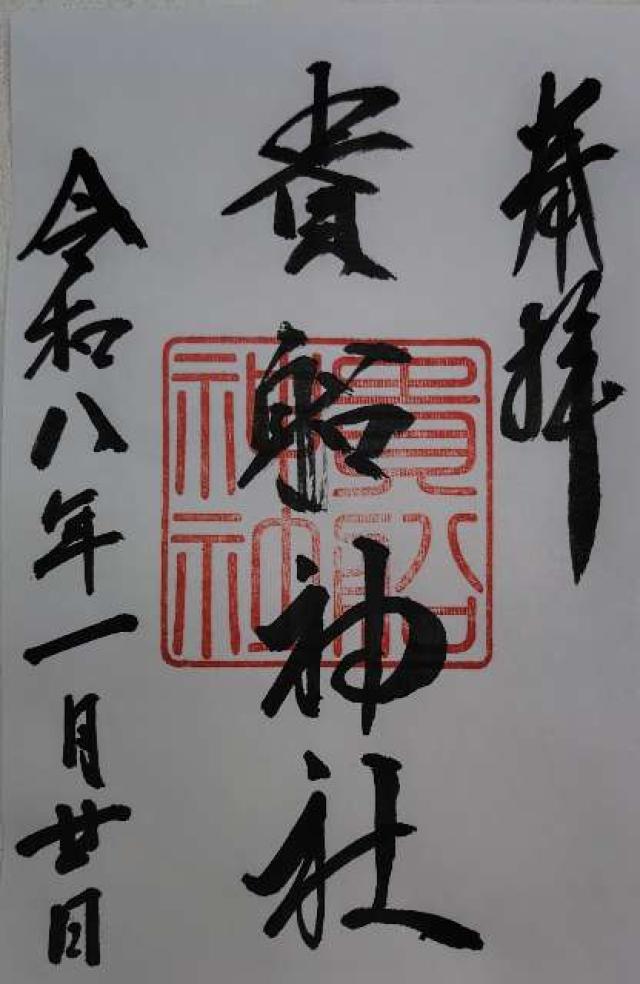 奉拝
貴船神社
貴船神社
令和八年一月廿日